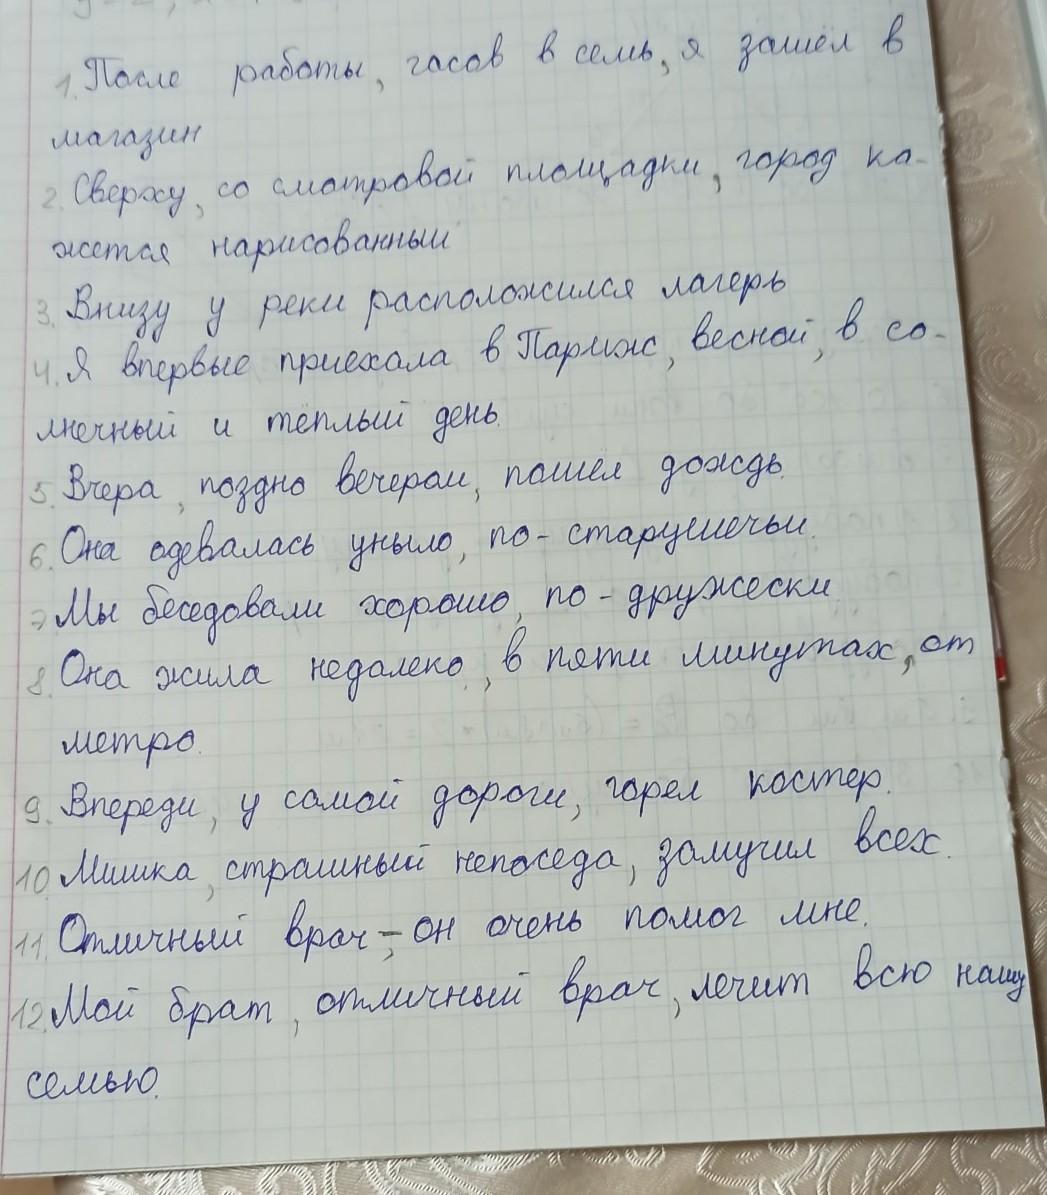 1. После работы, часов в семь, я зашёл в
магазин
2. Сверху, со смотровой площадки, город ка-
жется нарисованным
3. Внизу у реки расположился лагерь
4. Я впервые приехала в Париж, весной, в со-
лнечный и тёплый день.
5. Вчера, поздно вечером, пошёл дождь.
6. Она одевалась уныло, по-старушечьи.
7. Мы беседовали хорошо, по-дружески
8. Она жила недалеко, в пяти минутах, от
метро.
9. Впереди, у самой дороги, горел костер.
10. Мишка, страшный непоседа, замучил всех.
11. Отличный врач, – он очень помог мне.
12. Мой брат, отличный врач, лечит всю нашу
семью.